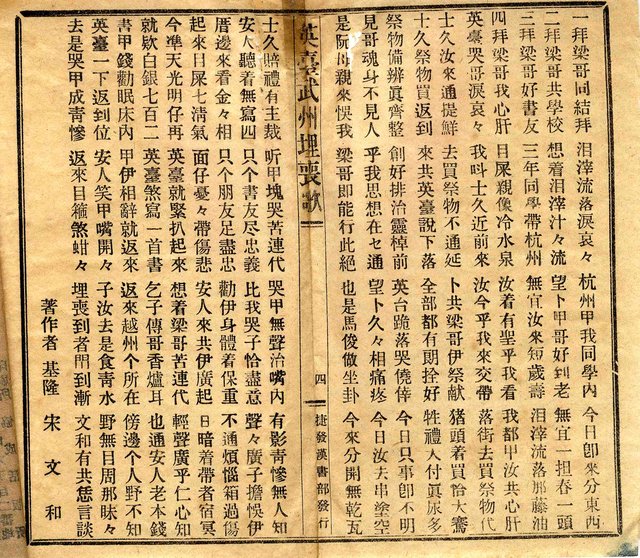 一拜梁哥同結拜 泪滓流落淚哀々 杭州甲我同學內 今日卽來分東西
二拜梁哥共學校 想着泪滓汁々流 望卜甲哥好到老 無宜一担舂一頭
三拜梁哥好書友 三年同學帶杭州 無宜汝來短歲壽 泪滓流落那藤油
四拜梁哥我心肝 日屎親像冷水泉 汝着有聖乎我看 我都甲汝共心肝
英臺哭哥淚哀々 我呌士久近前來 汝今乎我來交帶 落街去買祭物代
士久汝來通提鮮 去買祭物不通延 卜共梁哥伊祭献 猪頭着買恰大
士久祭物買返到 來共英臺說下落 全部都有朗拴好 牲禮人付眞尿多
祭物備辨眞齊整 創好排治靈棹前 英台跪落哭僥倖 卽久只事卽不明
見哥魂身不見人 乎我思想在七通 望卜久々相痛疼 今日汝去串塗空
是阮母親來悞我 梁哥卽能行此絕 也是馬俊傲坐卦 今來分開無乾瓦
英臺武州埋喪歌 四 捷發漢書部發行
士久賠禮有主裁 听甲塊哭苦連代 哭甲無聲治嘴內 有影靑慘無人知
安人聽着無寫四 只个書友尽忠義 比我哭子恰盡意 聲々廣子擔悞伊
厝邊來看金々相 只个朋友足盡忠 勸伊身體着保重 不通煩惱箱過傷
起來日屎七淸氣 面仔憂々帶傷悲 安人來共伊廣起 日暗着帶者宿冥
今準天光明仔再 英臺就緊扒起來 想着梁哥苦連代 輕聲廣乎仁心知
就欵白銀七百二 英臺煞寫一首書 乞子傳哥香爐耳 也通安人老本錢
書甲錢勸眠床內 甲伊相辭就返來 返來越州个所在 傍邊个人野不知
英臺一下返到位 安人笑甲嘴開々 子汝去是食靑水 野無目周那昧々
去是哭甲成靑慘 返來目箍煞蚶々 埋喪到者門到漸 文和有共恁言談
著作者 基隆 宋文和